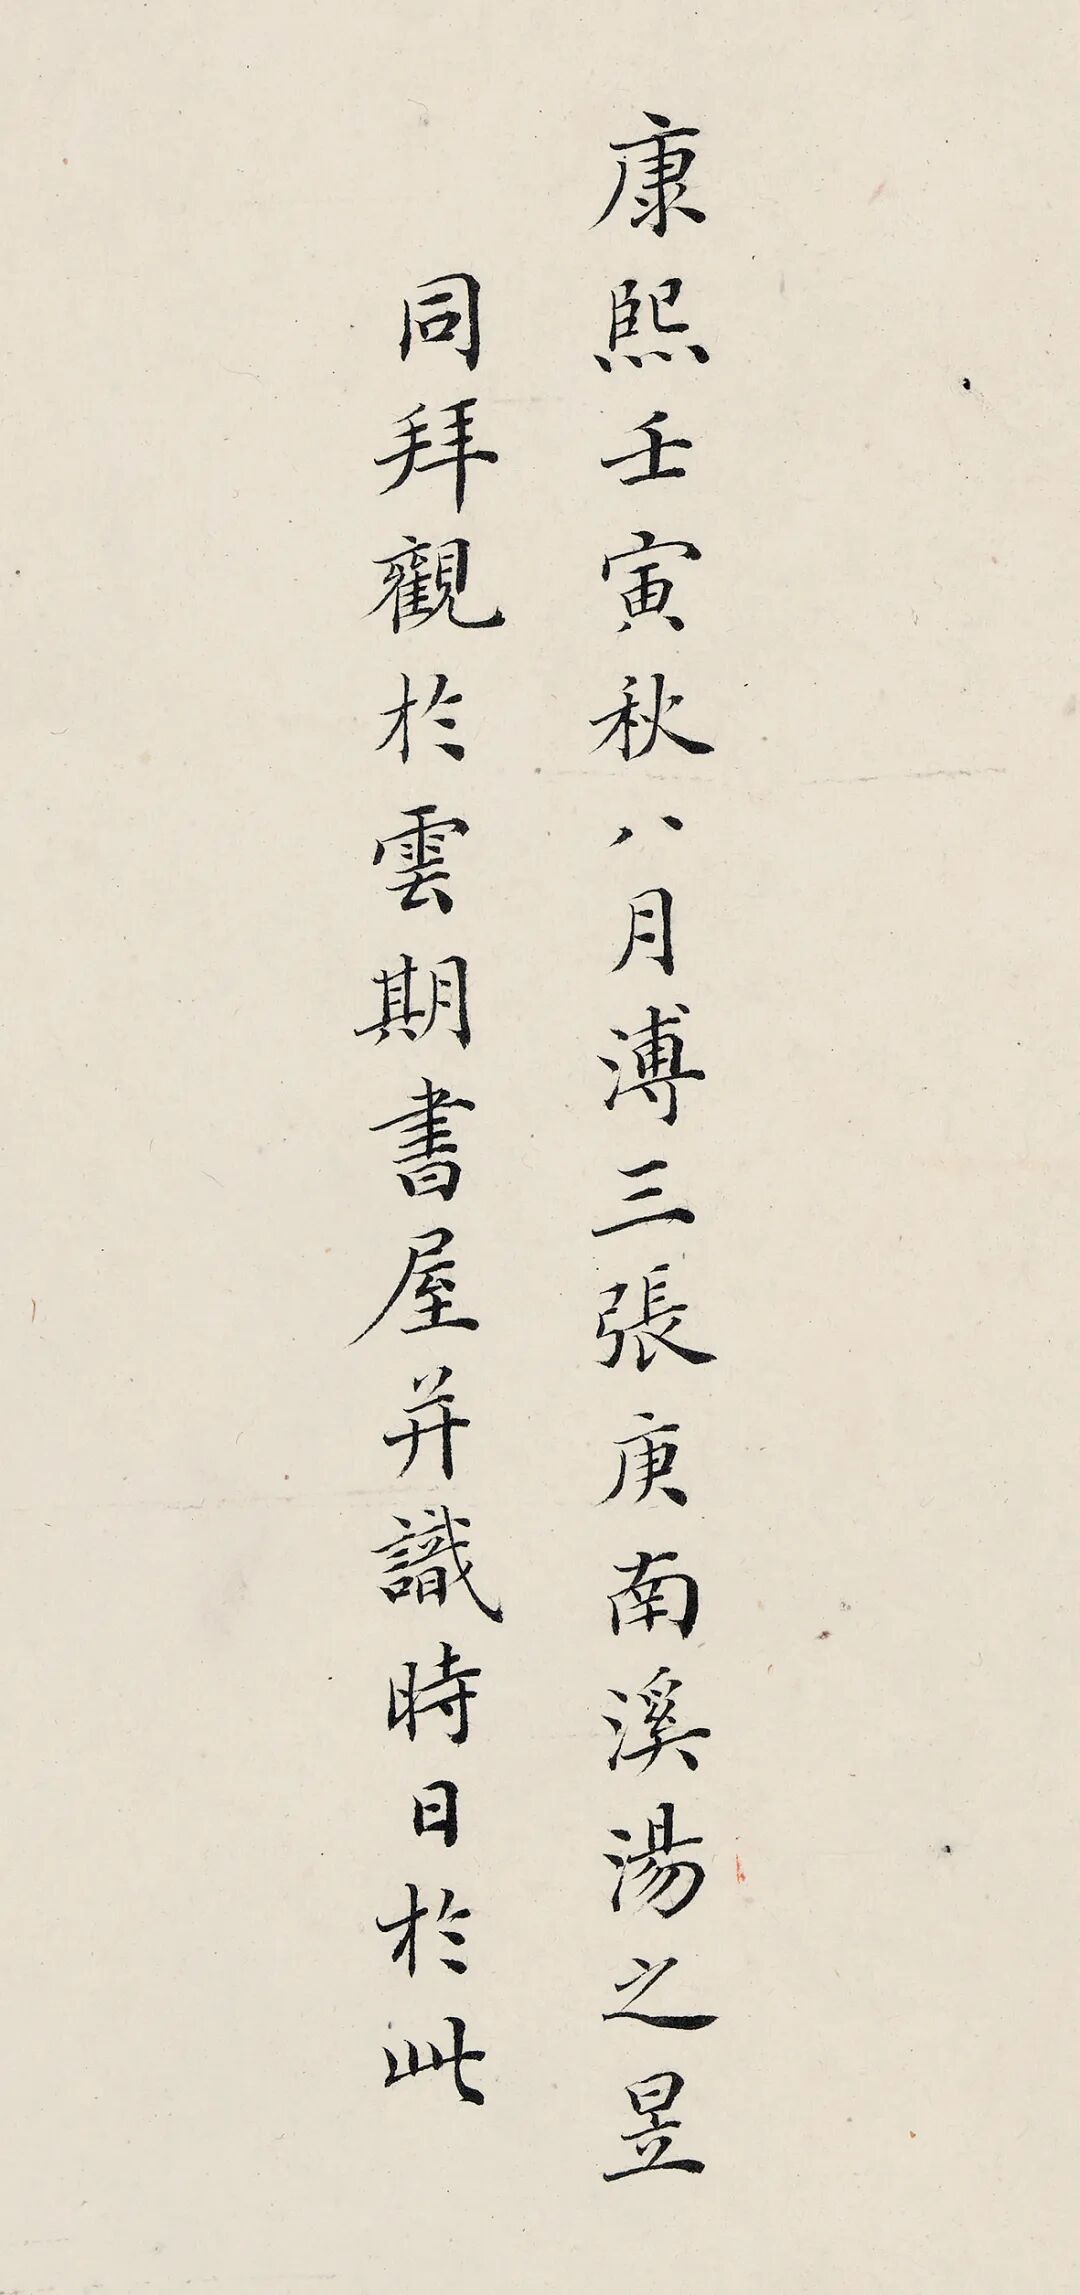 康熙壬寅秋八月溥三張庚南溪湯之昱
同拜觀於雲期書屋并識時日於此